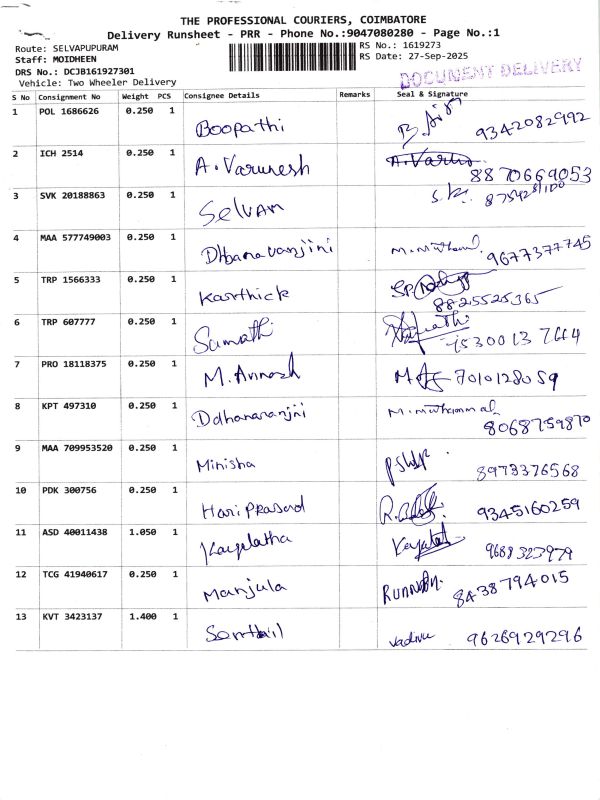 THE PROFESSIONAL COURIERS, COIMBATORE
Delivery Runsheet - PRR - Phone No.:9047080280 - Page No.:1
Route: SELVAPUPURAM RS No.: 1619273
Staff: MOIDHEEN RS Date: 27-Sep-2025
DRS No.: DCJB161927301 DOCUMENT DELIVERY
Vehicle: Two Wheeler Delivery
S No Consignment No Weight PCS Consignee Details Remarks Seal & Signature
1 POL 1686626 0.250 1 Boopathi 9342082992
2 ICH 2514 0.250 1 A. Varunesh 8870669053
3 SVK 20188863 0.250 1 Selvam
4 MAA 577749003 0.250 1 Dhanavanjini 9677377745
5 TRP 1566333 0.250 1 Karthick 8825525365
6 TRP 607777 0.250 1 Sumathi
7 PRO 18118375 0.250 1 M. Avinash 7010128059
8 KPT 497310 0.250 1 8068759870
9 MAA 709953520 0.250 1 Minisha 8973376568
10 PDK 300756 0.250 1 Hari Prasad 9345160259
11 ASD 40011438 1.050 1 Kayalatha 9688323979
12 TCG 41940617 0.250 1 Manjula 8438794015
13 KVT 3423137 1.400 1 Senthil Vadivu 9626929296